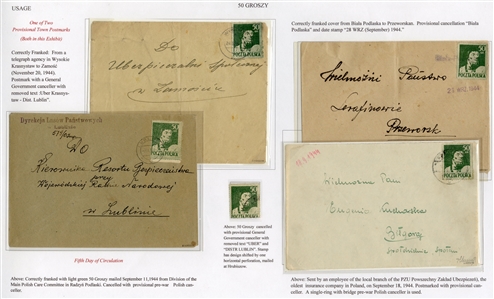 USAGE
50 GROSZY
One of Two
Provisional Town Postmarks
(Both in this Exhibit)
Correctly Franked: From a
telegraph agency in Wysokie
Krasnystaw to Zamość
(November 20, 1944).
Postmark with a General
Government canceller with
removed text: "Uber Krasnys-
taw - Dist. Lublin".
Do
Ubezpieczalni Społecznej
w Zamościu
50
POCZTA POLSKA
Correctly franked cover from Biała Podlaska to Przeworskan. Provisional cancellation "Biała
Podlaska" and date stamp "28 WRZ (September) 1944."
Wielmożni Państwo
Serafinowie
Przeworsk
50
POCZTA POLSKA
Dyrekcja Lasów Państwowych
DO
Kierownika Resortu Bezpieczeństwa
przy
Wojewódzkiej Radzie Narodowej
w Lublinie
50
POCZTA POLSKA
Fifth Day of Circulation
Above: Correctly franked with light green 50 Groszy mailed September 11,1944 from Division of the
Main Polish Care Committee in Radzyń Podlaski. Cancelled with provisional pre-war Polish can-
celler.
50
POCZTA POLSKA
Above: 50 Groszy cancelled
with provisional General
Government canceller with
removed text "UBER" and
"DISTR LUBLIN". Stamp
has design shifted by one
horizontal perforation, mailed
at Hrubieszów.
Wielmożna Pani
Eugenia
Biłgoraj
50
POCZTA POLSKA
Above: Sent by an employee of the local branch of the PZU Powszechny Zakład Ubezpieczeń), the
oldest insurance company in Poland, on September 18, 1944. Postmarked with provisional can-
celler. A single-ring with bridge pre-war Polish canceller is used.